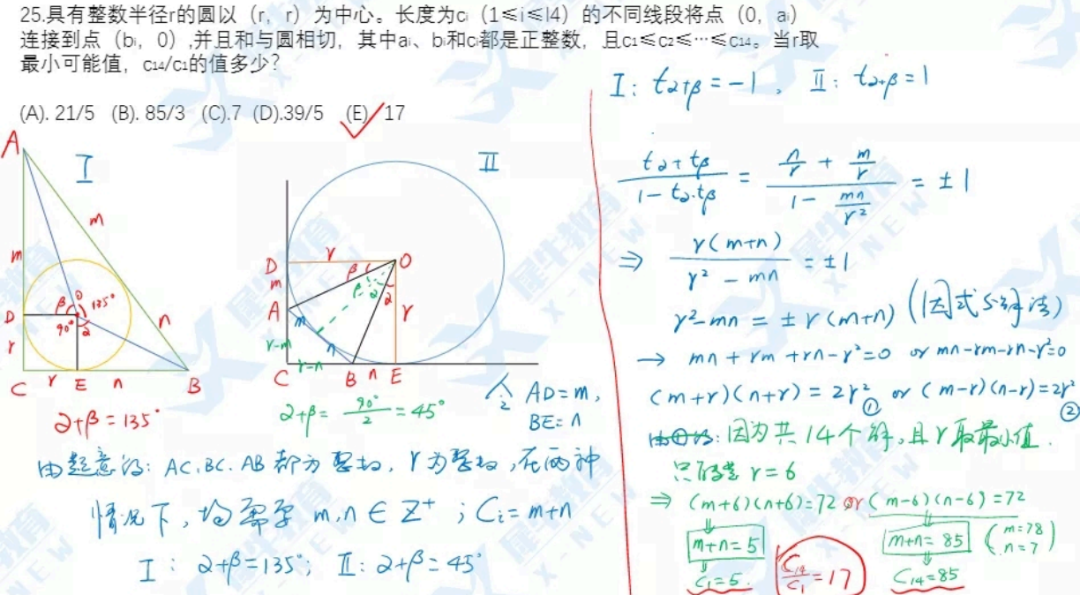 25.具有整数半径r的圆以（r，r）为中心。长度为cᵢ（1≤i≤l4）的不同线段将点（0，aᵢ）
连接到点（bᵢ，0）,并且和与圆相切，其中aᵢ、bᵢ和cᵢ都是正整数，且c₁≤c₂≤…≤c₁₄。当r取
最小可能值，c₁₄/c₁的值多少？
(A). 21/5 (B). 85/3 (C).7 (D).39/5 (E) 17
I
A
m
m
D
r
β
O
135°
90°
α
n
C
r
E
n
B
α+β=135°
II
D
r
β
O
m
A
m
β
α
α
r
r-m
n
r-n
C
B
n
E
α+β=90°/2=45°
令 AD=m,
BE=n
由题意得: AC.BC.AB都为整数, r为整数, 在两种
情况下, 均需要 m,n∈Z⁺ ; Cᵢ=m+n
I: α+β=135°; II: α+β=45°
I: tα+β=-1, II: tα+β=1
(tα+tβ)/(1-tα·tβ) = (n/r + m/r)/(1 - mn/r²) = ±1
⇒ r(m+n)/(r²-mn) = ±1
r²-mn = ±r(m+n) (因式分解法)
→ mn+rm+rn-r²=0 or mn-rm-rn-r²=0
(m+r)(n+r)=2r² ① or (m-r)(n-r)=2r² ②
因为共14个解, 且r取最小值.
只能是 r=6
⇒ (m+6)(n+6)=72 or (m-6)(n-6)=72
m+n=5
m+n=85 (m=78
n=7)
C₁=5
C₁₄/C₁=17
C₁₄=85
犀牛教育
X-NEW